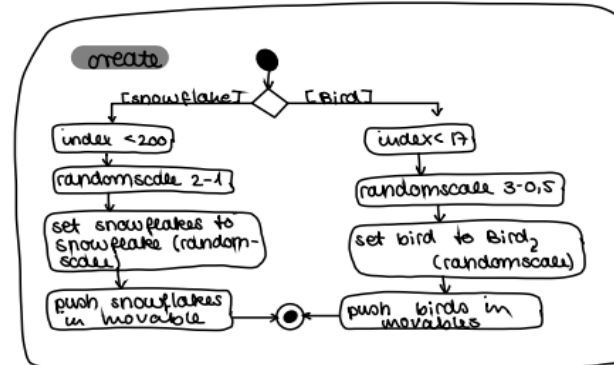 create
[snowflake]
[Bird]
index <200
randomscale 2-1
set snowflakes to
snowflake (random-
scale)
push snowflakes
in movable
index< 17
randomscale 3-0,5
set bird to Bird2
(randomscale)
push birds in
movables